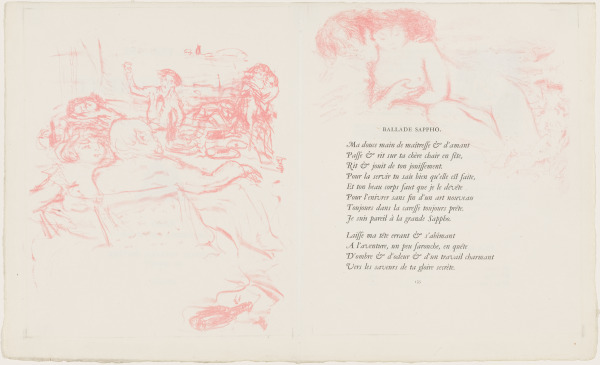 BALLADE SAPPHO.
Ma douce main de maîtresse & d'amant
Passe & rit sur ta chère chair en fête,
Rit & jouit de ton jouissement.
Pour la servir tu sais bien qu'elle est faite,
Et ton beau corps faut que je le dévête
Pour l'enivrer sans fin d'un art nouveau
Toujours dans la caresse toujours prête.
Je suis pareil à la grande Sappho.
Laisse ma tête errant & s'abîmant
A l'aventure, un peu farouche, en quête
D'ombre & d'odeur & d'un travail charmant
Vers les saveurs de ta gloire secrète.